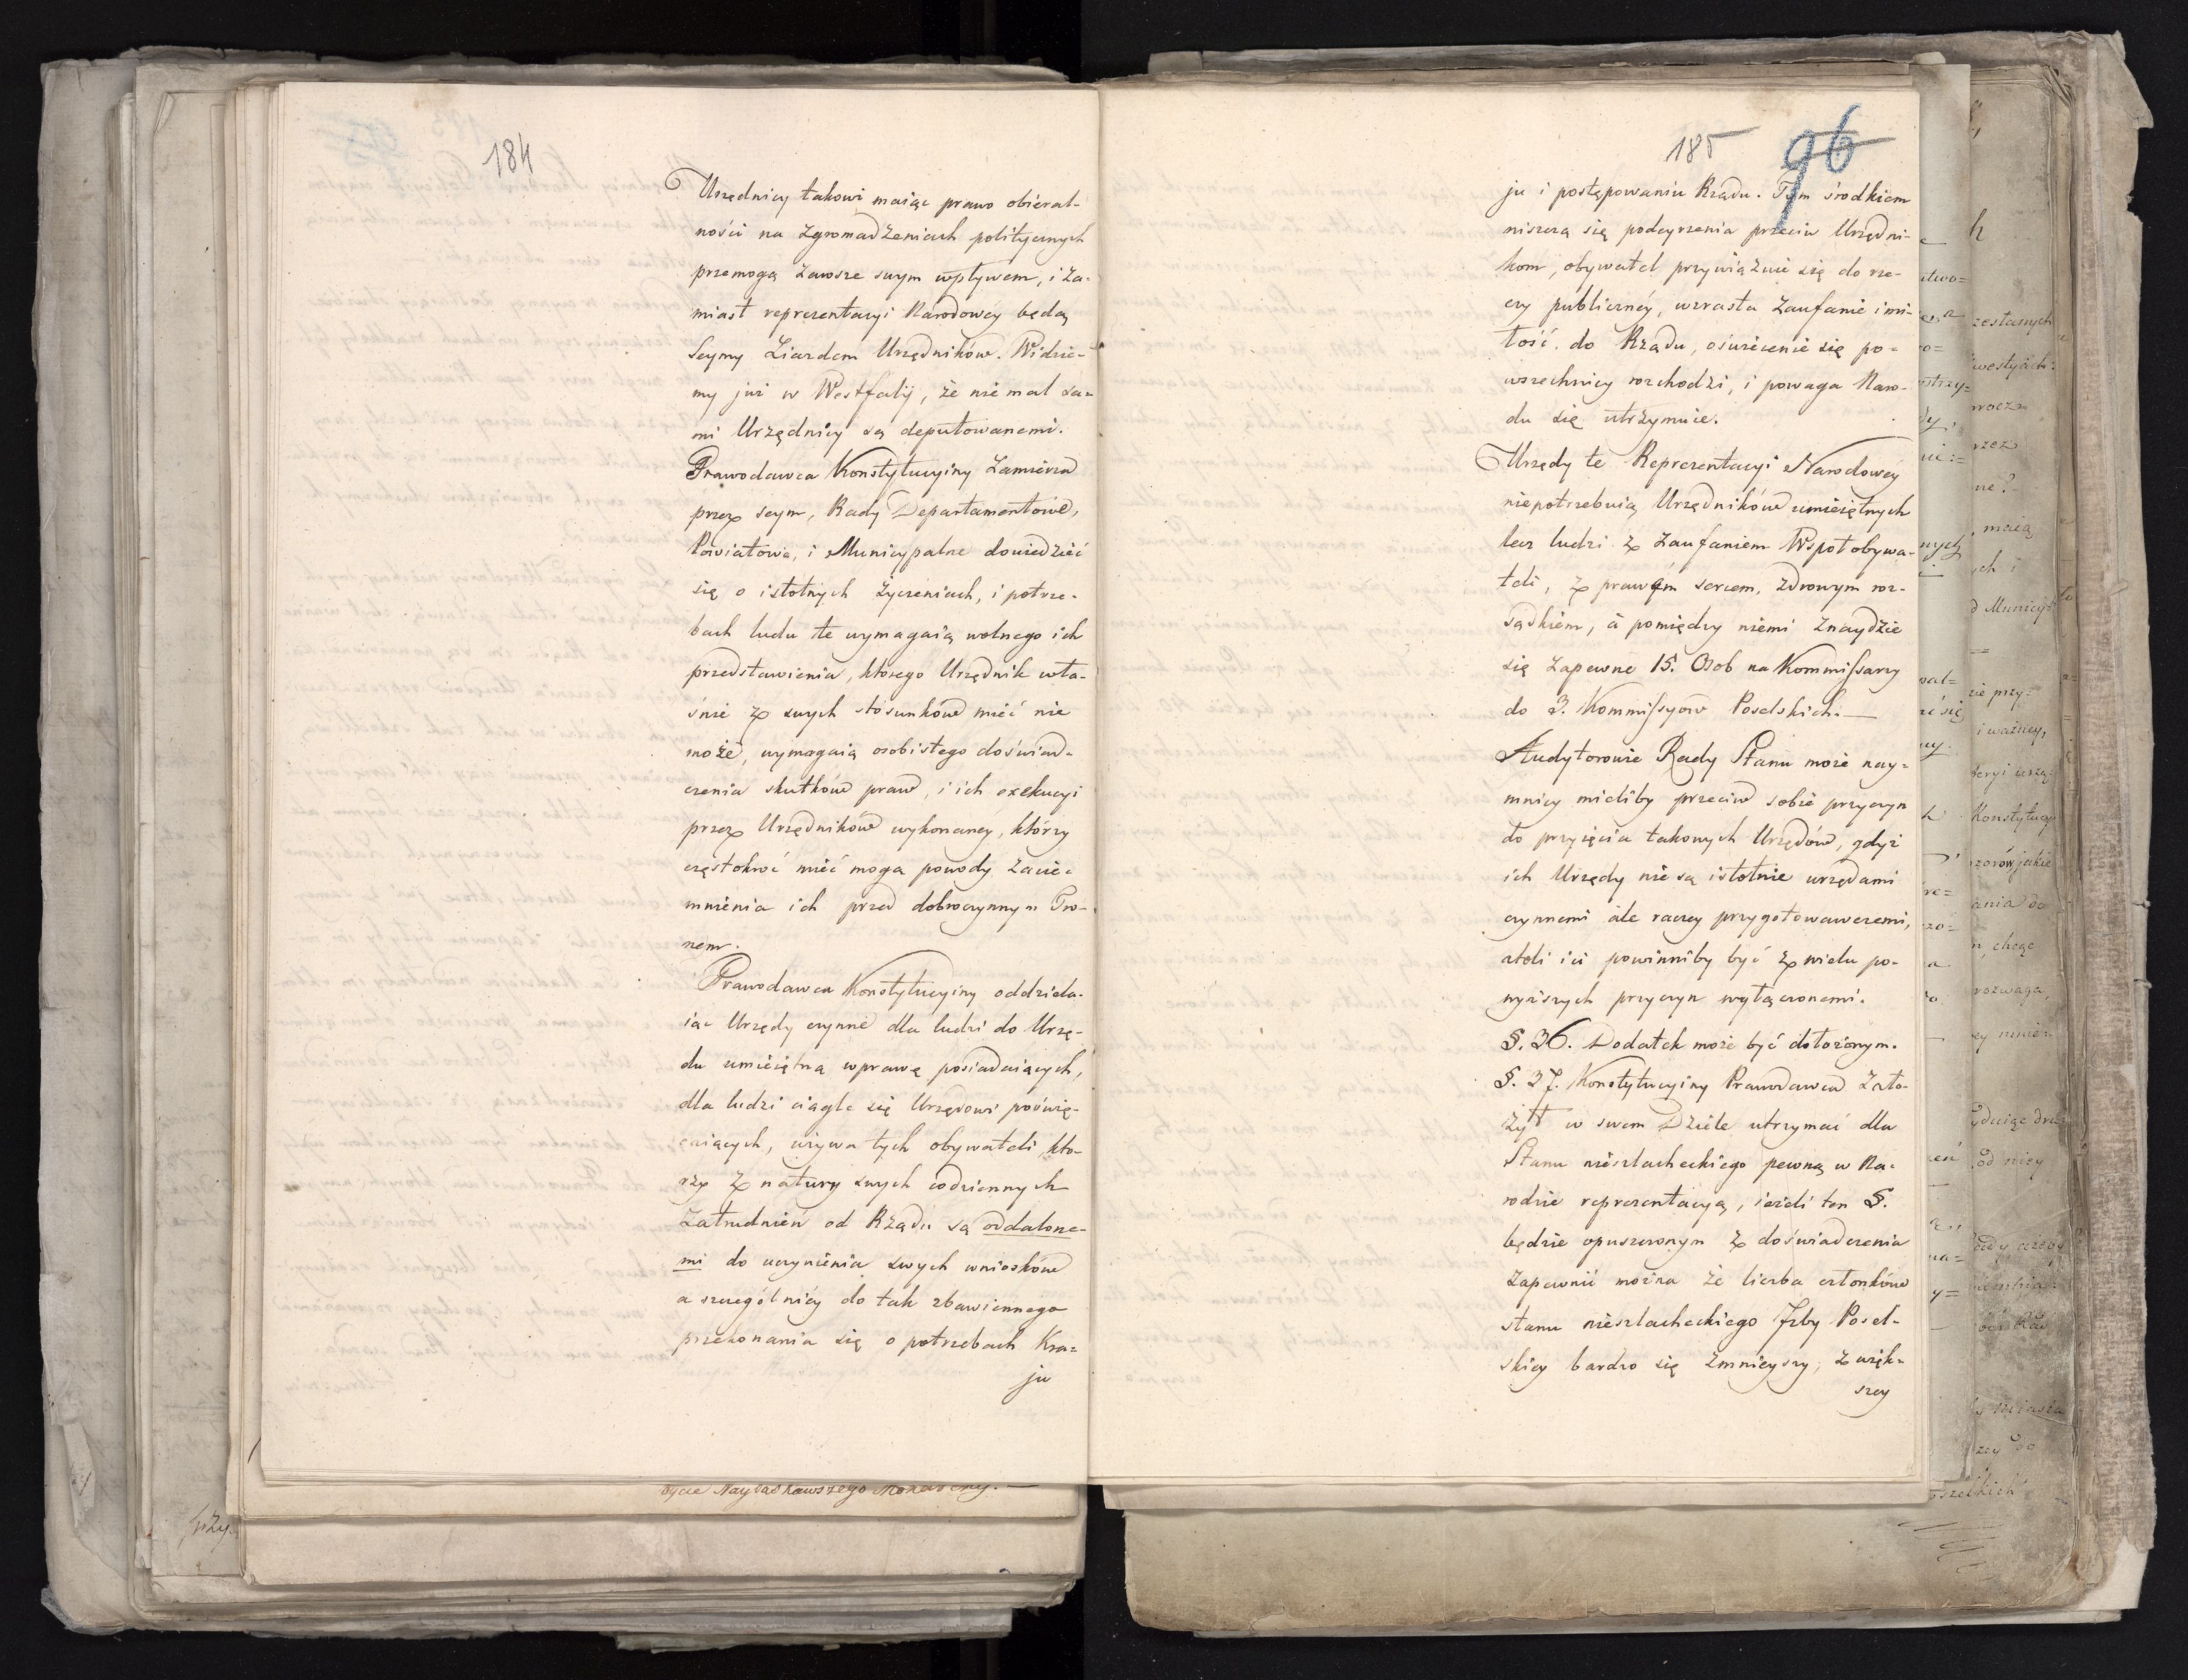 184
Urzędnicy takowi maiąc prawo obieral-
ności na zgromadzeniach politycznych
przemogą zawsze swym wpływem, i za-
miast reprezentacyi Narodowéy będą
Seymy Ziazdem Urzędników. Widzie-
my już w Westfalij, że nie mal sa=
mi Urzędnicy są deputowanemi.
Prawodawca Konstytucyiny zamierzał
przez seym, Rady Departamentowe,
Powiatowe, i Municypalne dowiedzieć
się o istotnych życzeniach, i potrze-
bach ludu te wymagaią wolnego ich
przedstawienia, którego Urzędnik wła-
śnie z swych stósunków mieć nie
może, wymagaią osobistego doświad-
czenia skutków praw, i ich exekucyi
przez Urzędników wykonanéy, którzy
częstokroć mieć mogą powody zacie-
mnienia ich przed dobroczynnym Tro-
nem.
Prawodawca Konstytucyiny oddziela-
iąc Urzędy czynne dla ludzi do Urzę-
du umieiętną wprawę posiadaiących,
dla ludzi ciągle się Urzędowi poświę-
caiących, używa tych obywateli, kto-
rzy z natury swych codziennych
zatrudnień od Rządu są oddalone-
mi do uczynienia swych wniosków
a szczególniéy do tak zbawiennego
przekonania się o potrzebach Kra=
ju
185 96
ju i postępowaniu Rządu. Tym środkiem
niszczą się podeyrzenia przeciw Urzędni-
kom, obywatel przywiązuie się do rze-
czy publicznéy, wzrasta zaufanie i mi-
łość do Rządu, oświécenie się po-
wszechniey rozchodzi, i powaga Naro-
du się utrzymuie.
Urzędy te Reprezentacyi Narodowéy
niepotrzebuią Urzędników umieiętnych
lecz ludzi z zaufaniem Współobywa-
teli, z prawym sercem, zdrowym roz-
sądkiem, a pomiędzy niemi znaydzie
się zapewne 15. Osob na Kommissarzy
do 3. Kommissyów Poselskich.—
Audytorowie Rady Stanu może nay=
mniey mieliby przeciw sobie przyczyn
do przyięcia takowych Urzędów, gdyż
ich Urzędy nie są istotnie urzędami
czynnemi ale raczey przygotowawczemi,
atoli ici powinniby być z wielu po-
wyższych przyczyn wyłączonemi.
§. 36. Dodatek może być dołożonym.
§. 37. Konstytucyiny Prawodawca zało-
żył w swem Dziele utrzymać dla
Stanu nieszlacheckiego pewną w Na-
rodzie reprezentacyą, ieżeli ten §.
będzie opuszczonym z doświadczenia
zapewnić można że liczba członków
stanu nieszlacheckiego Izby Posel-
skiey bardzo się zmnieyszy, z więk-
szey